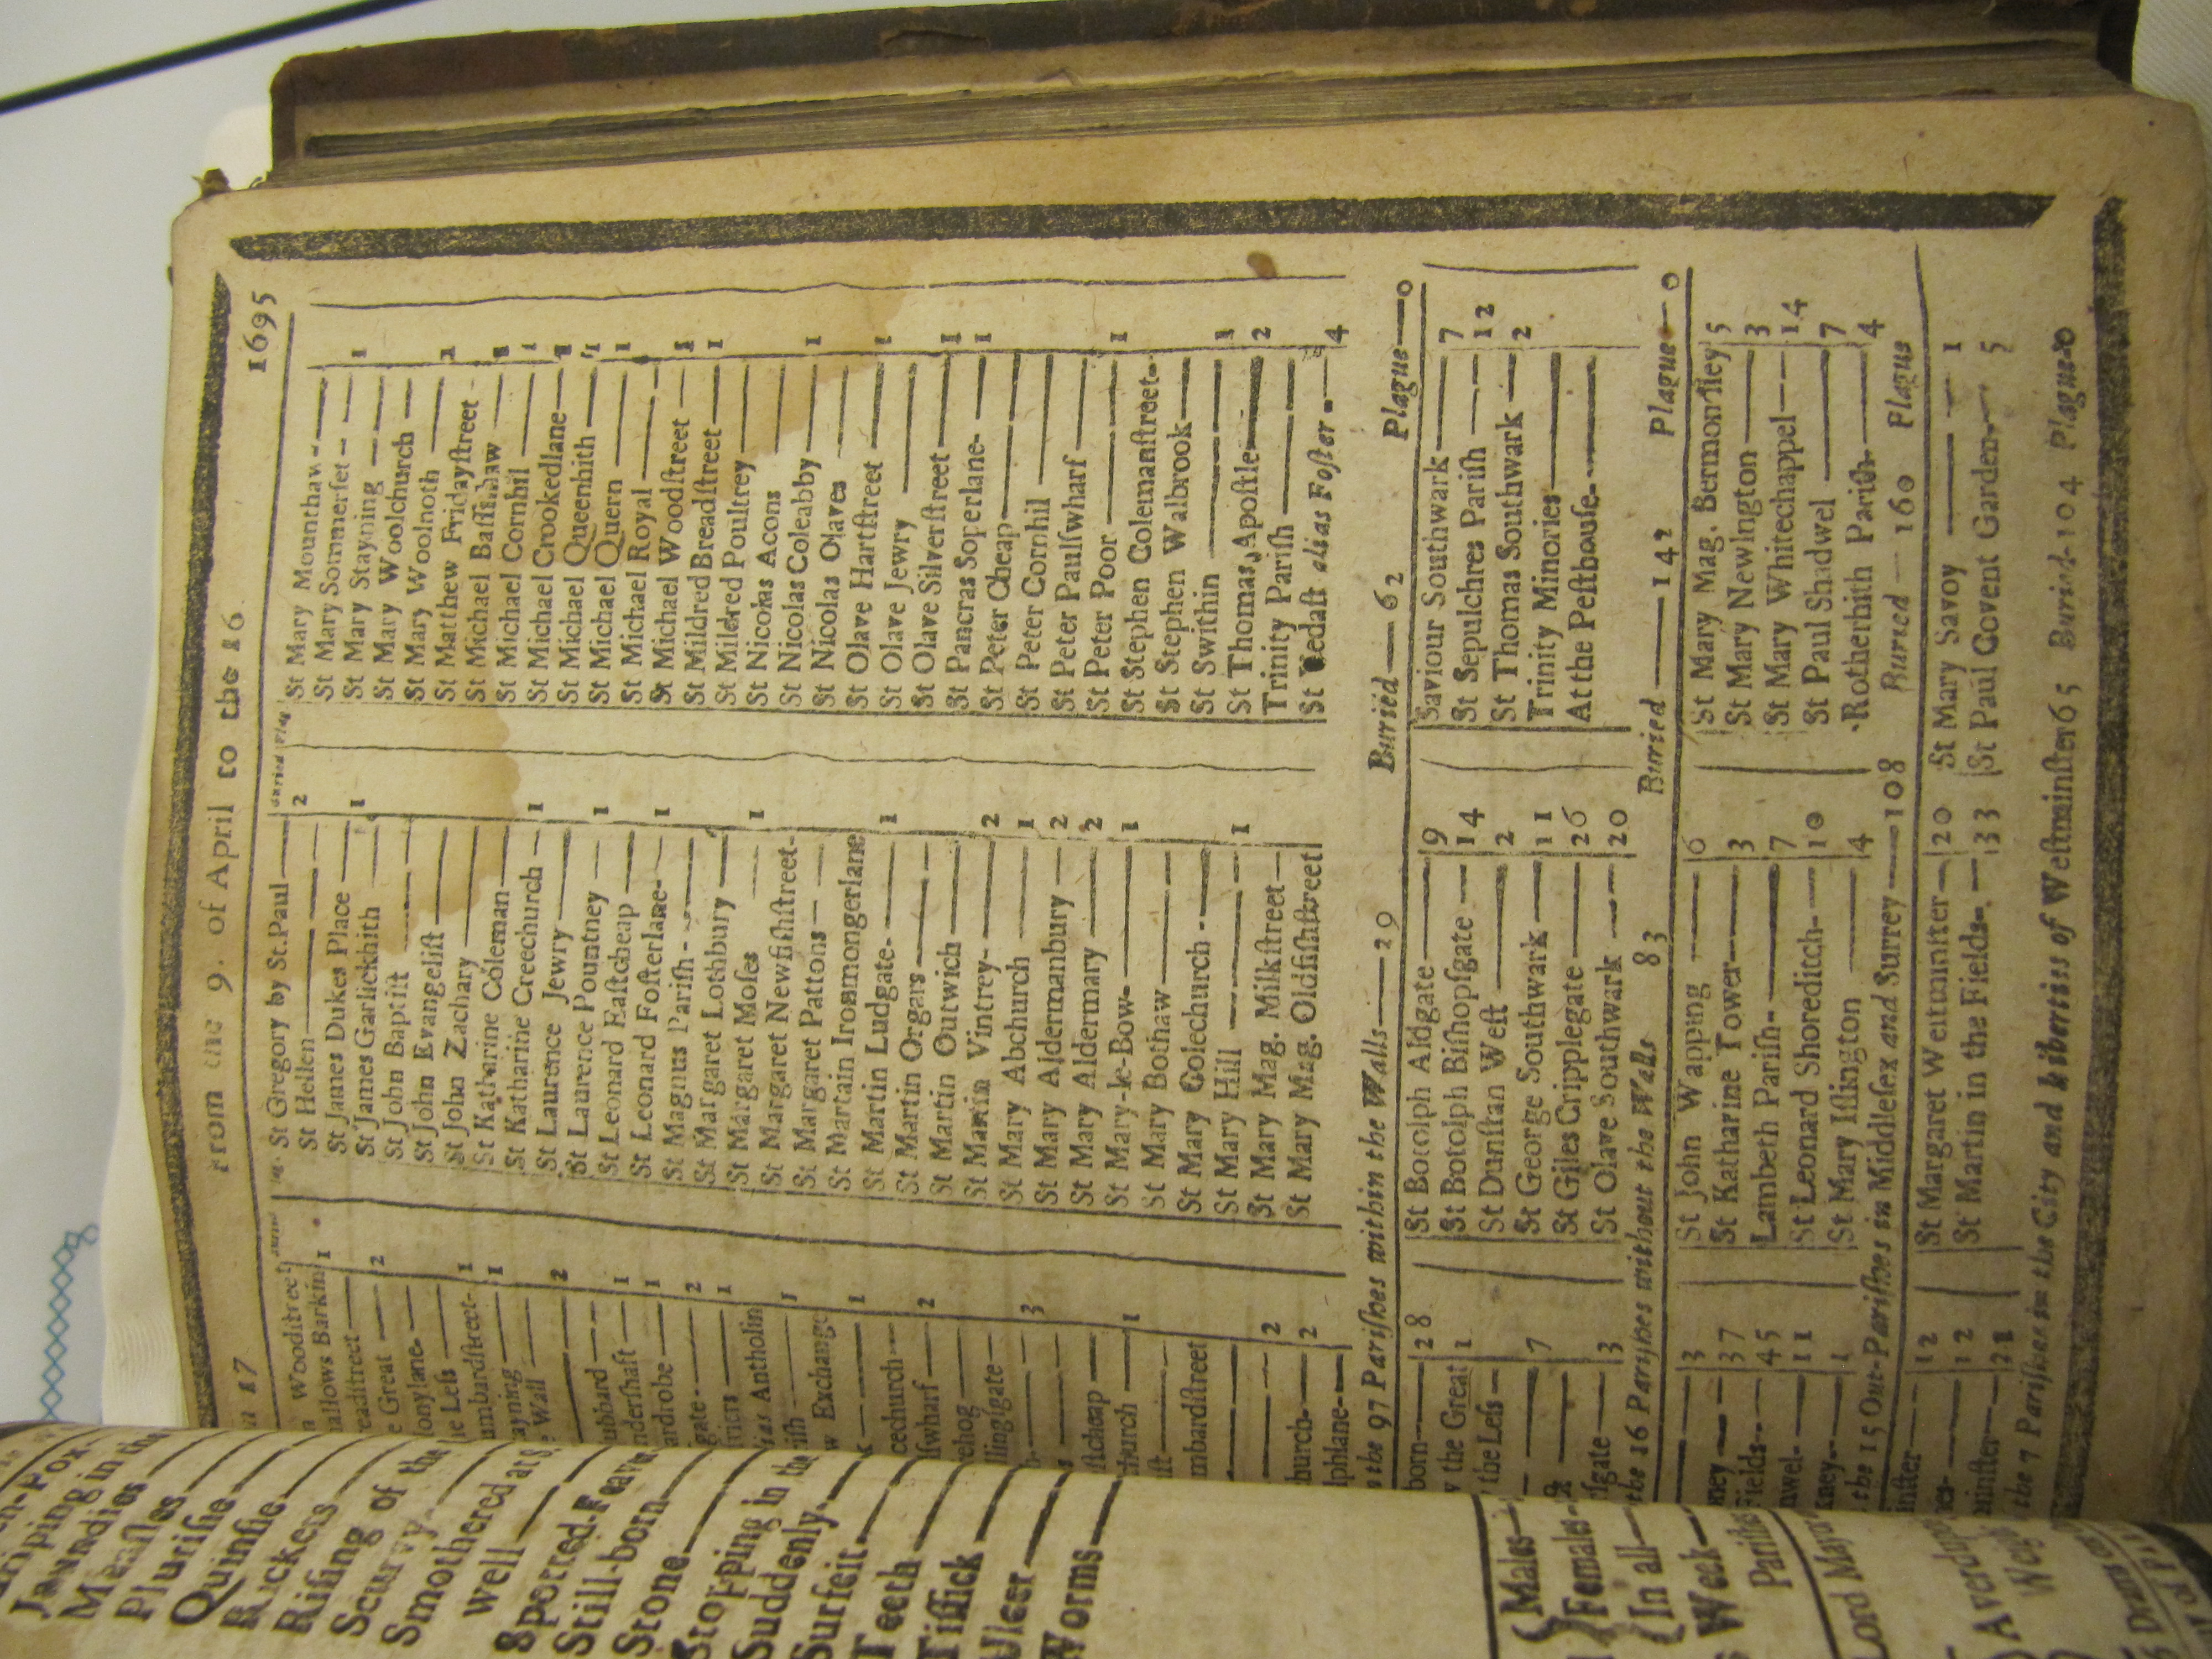 17 From the 9. of April to the 16. 1695
Woodstreet
allows Barking 1
readstreet
e Great 2
onylane
he Less
umbardstreet 1
ayning 1
e Wall
2
ubbard
ndershaft 1
ardrobe 1
gate 2
riers 1
ias Antholin
rish 1
w Exchange
1
cechurch
fswharf 2
ehog
llingsgate
3
stcheap
church 1
st
mbardstreet
2
hurch 2
lphlane
St Gregory by St.Paul
St Hellen 2
St James Dukes Place
St James Garlickhith 1
St John Baptist
St John Evangelist
St John Zachary
St Katharine Coleman
St Katharine Creechurch 1
St Laurence Jewry
St Laurence Pountney 1
St Leonard Eastcheap
St Leonard Fosterlane 1
St Magnus Parish
St Margaret Lothbury
St Margaret Moses 1
St Margaret Newfishstreet
St Margaret Pattons
St Martain Ironmongerlane
St Martin Ludgate 1
St Martin Orgars
St Martin Outwich
St Martin Vintrey 2
St Mary Abchurch 1
St Mary Aldermanbury 2
St Mary Aldermary 2
St Mary-le-Bow 1
St Mary Bothaw
St Mary Colechurch
St Mary Hill 1
St Mary Mag. Milkstreet
St Mary Mag. Oldfishstreet
St Mary Mounthaw
St Mary Sommerset 1
St Mary Stayning
St Mary Woolchurch
St Mary Woolnoth 1
St Matthew Fridaystreet
St Michael Bassishaw 1
St Michael Cornhil 1
St Michael Crookedlane 1
St Michael Queenhith 1
St Michael Quern 1
St Michael Royal
St Michael Woodstreet 1
St Mildred Breadstreet 1
St Mildred Poultrey
St Nicolas Acons
St Nicolas Coleabby 1
St Nicolas Olaves
St Olave Hartstreet 1
St Olave Jewry
St Olave Silverstreet 1
St Pancras Soperlane 1
St Peter Cheap
St Peter Cornhil
St Peter Paulswharf
St Peter Poor 1
St Stephen Colemanstreet
St Stephen Walbrook
St Swithin 1
St Thomas Apostle 2
Trinity Parish
St Vedast alias Foster 4
the 97 Parishes within the Walls 29 Buried 62 Plague 0
born 28
the Great 1
the Less
7
lsgate 3
St Botolph Aldgate 9
St Botolph Bishopsgate 14
St Dunstan West 2
St George Southwark 11
St Giles Cripplegate 26
St Olave Southwark 20
Saviour Southwark 7
St Sepulchres Parish 12
St Thomas Southwark 2
Trinity Minories
At the Pesthouse
the 16 Parishes without the Walls 83 Buried 142 Plague 0
3
ney 37
Fields 45
nwel 11
kney 1
St John Wapping 6
St Katharine Tower 3
Lambeth Parish 7
St Leonard Shoreditch 10
St Mary Islington 4
St Mary Mag. Bermondsey 5
St Mary Newington 3
St Mary Whitechappel 14
St Paul Shadwel 7
Rotherhith Parish 4
the 15 Out-Parishes in Middlesex and Surrey 108 Buried 160 Plague
inster 12
12
minster 21
St Margaret Westminster 20
St Martin in the Fields 33
St Mary Savoy 1
St Paul Covent Garden 5
the 7 Parishes in the City and Liberties of Westminster 65 Buried 104 Plague 0
Jaundies
Measles
Plurisie
Quinsie
Rickets
Rising of the
Scurvy
Smothered
well
Spotted-Feaver
Still-born
Stone
Stopping in the
Suddenly
Surfeit
Teeth
Tissick
Ulcer
Worms
Males
Females
In all
Week
Parishes
Lord Mayor
Averdupois
Weight